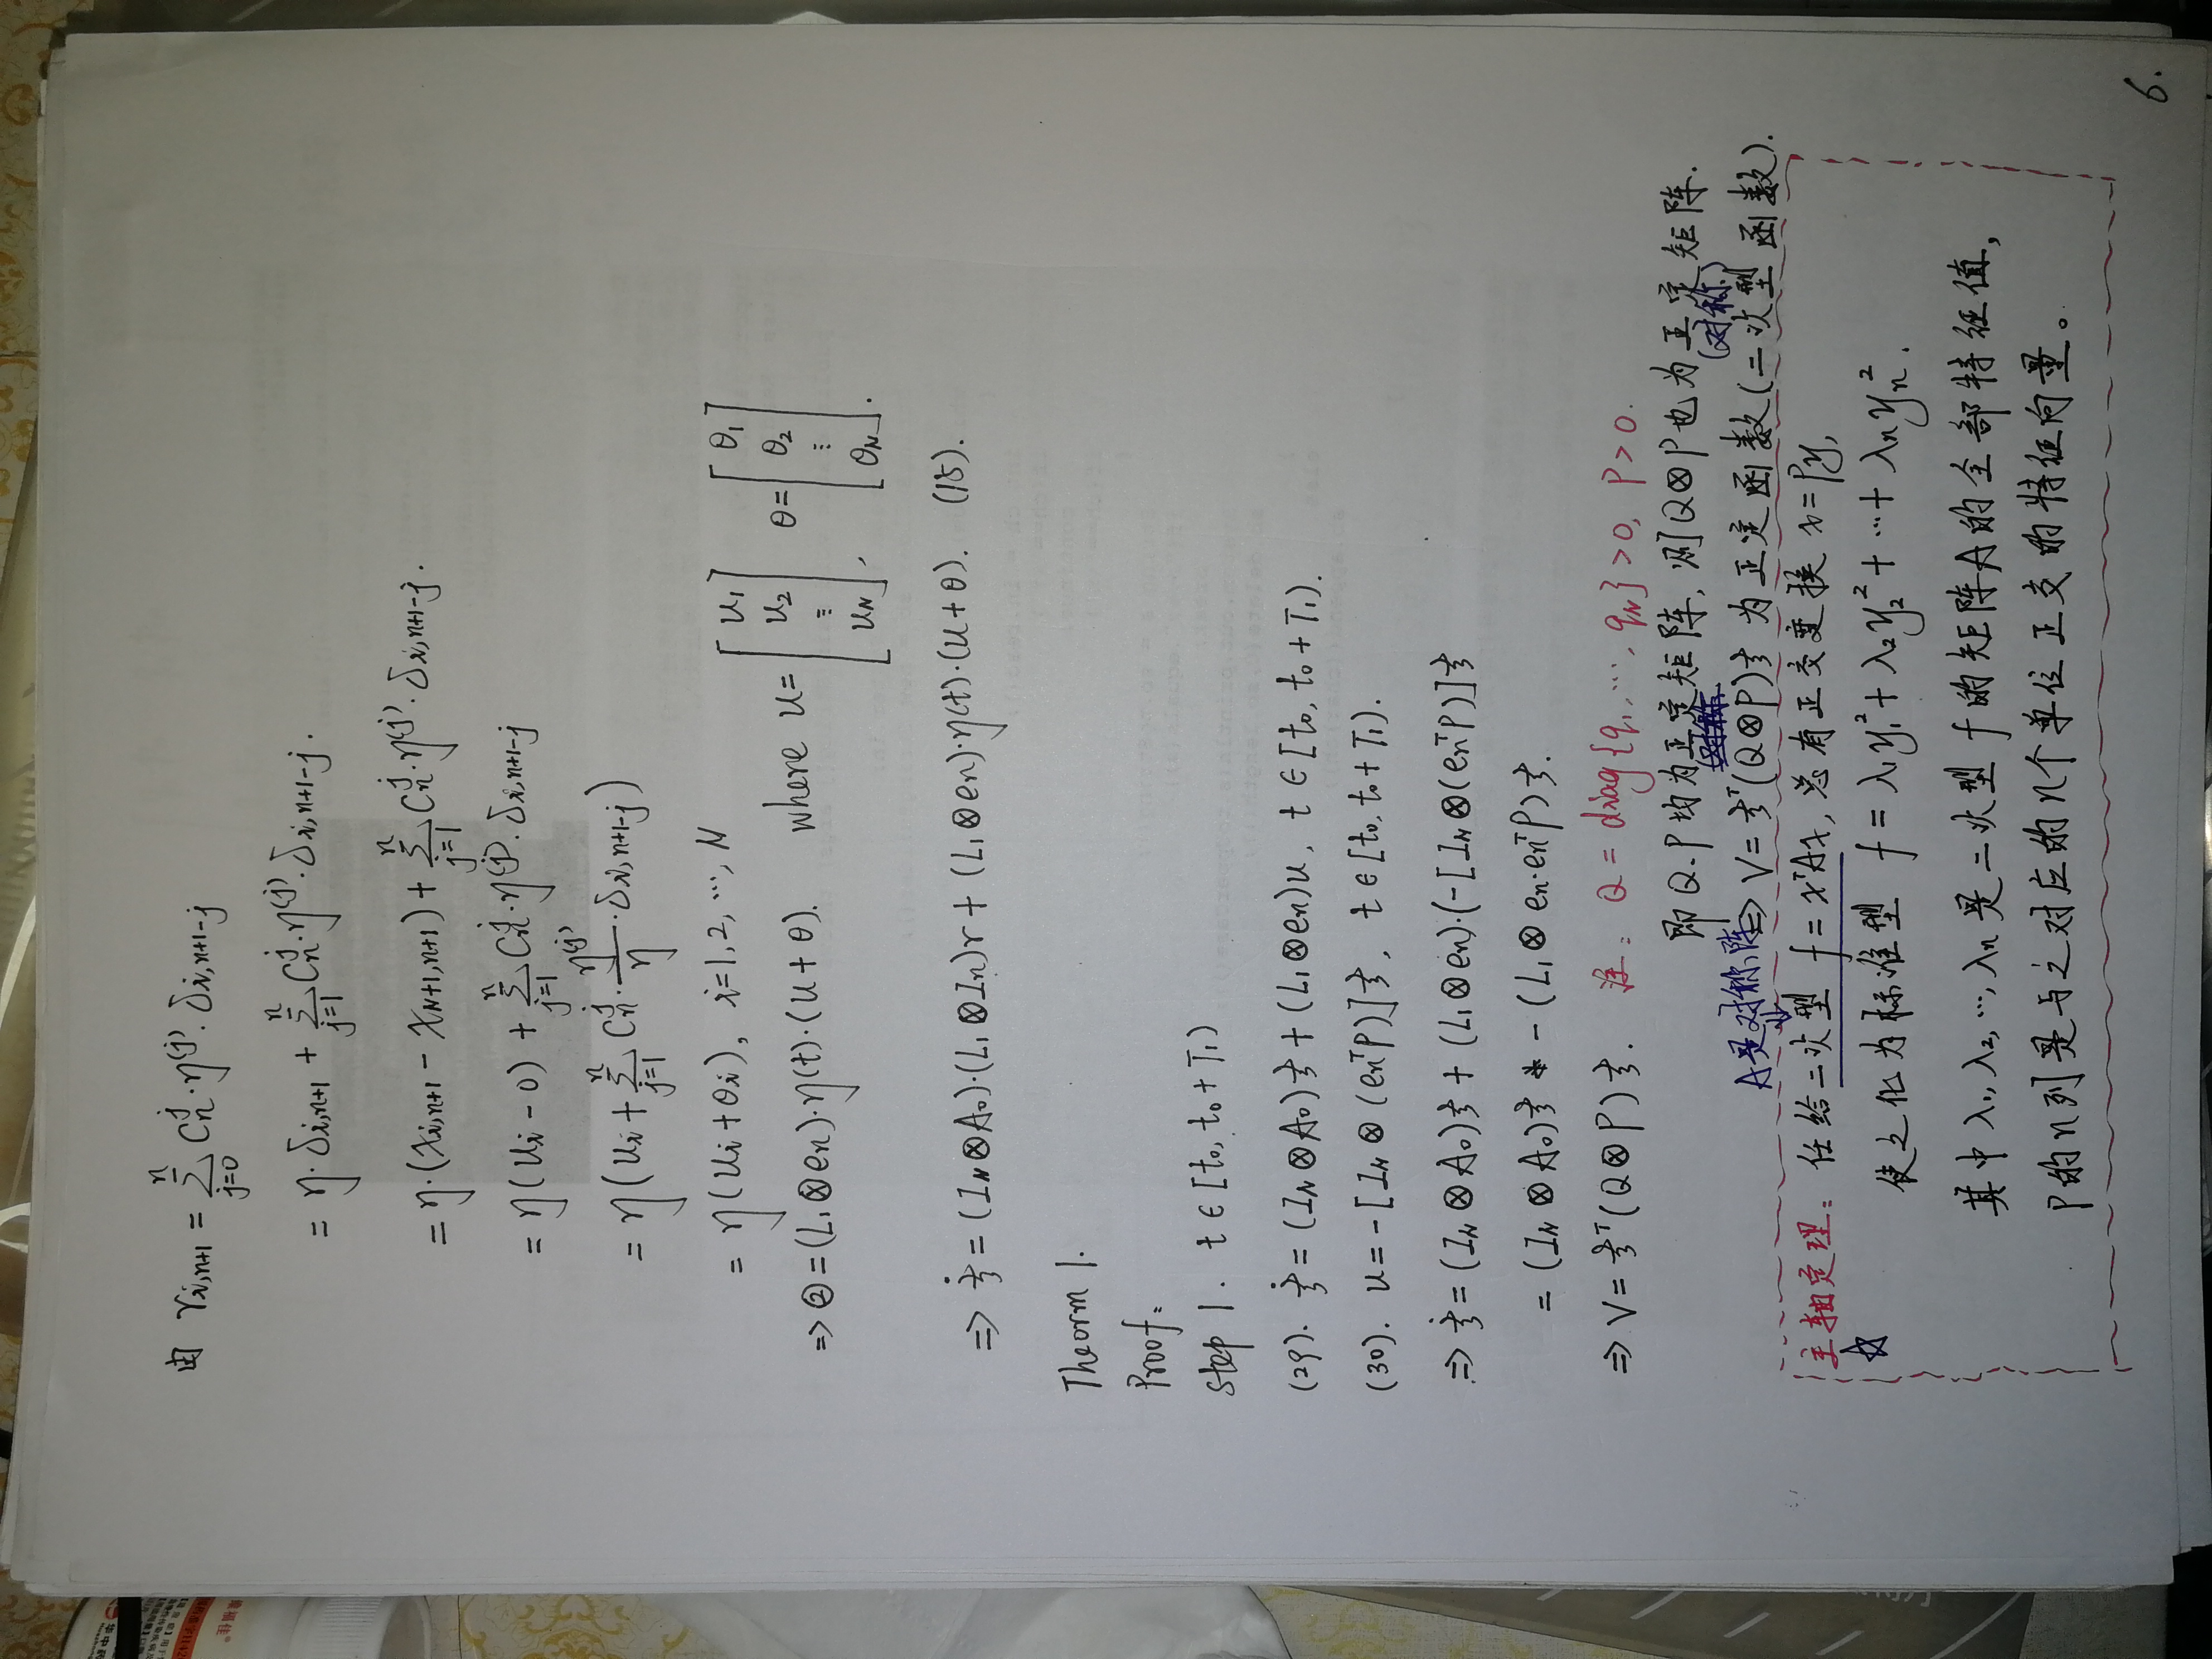 由 r_{i,n+1} = Σ_{j=0}^{n} C_n^j · η^{(j)} · δ_{i,n+1-j}
= η · δ_{i,n+1} + Σ_{j=1}^{n} C_n^j · η^{(j)} · δ_{i,n+1-j}.
= η · (x_{i,n+1} - x_{N+1,n+1}) + Σ_{j=1}^{n} C_n^j · η^{(j)} · δ_{i,n+1-j}.
= η(u_i - 0) + Σ_{j=1}^{n} C_n^j · η^{(j)} · δ_{i,n+1-j}
= η(u_i + Σ_{j=1}^{n} C_n^j · η^{(j)}/η · δ_{i,n+1-j})
= η(u_i + θ_i), i=1,2,…,N
⇒ ② = (L₁⊗e_n)·η(t)·(u+θ). where u = [u₁ u₂ ⋮ u_N], θ = [θ₁ θ₂ ⋮ θ_N].
⇒ ξ̇ = (I_N⊗A₀)·(L₁⊗I_n)r + (L₁⊗e_n)·η(t)·(u+θ). (15).
Theorm 1.
Proof:
step 1. t∈[t₀, t₀+T₁)
(29). ξ̇ = (I_N⊗A₀)ξ + (L₁⊗e_n)u, t∈[t₀, t₀+T₁).
(30). u = -[I_N⊗(e_n^T P)]ξ, t∈[t₀, t₀+T₁).
⇒ ξ̇ = (I_N⊗A₀)ξ + (L₁⊗e_n)·(-[I_N⊗(e_n^T P)]ξ
= (I_N⊗A₀)ξ - (L₁⊗e_n·e_n^T P)ξ.
⇒ V = ξ^T(Q⊗P)ξ. 注: Q = diag{q₁,…,q_N}>0, P>0.
即Q、P均为正定矩阵, 则Q⊗P也为正定矩阵.
(对称)
A是对称阵 ⇒ V = ξ^T(Q⊗P)ξ 为正定函数(二次型函数).
主轴定理: 任给二次型 f = x^T A x, 总有正交变换 x = Py,
☆ 使之化为标准型 f = λ₁y₁² + λ₂y₂² + … + λ_n y_n².
其中λ₁, λ₂, …, λ_n是二次型f的矩阵A的全部特征值,
P的n列是与之对应的n个单位正交的特征向量。
6.